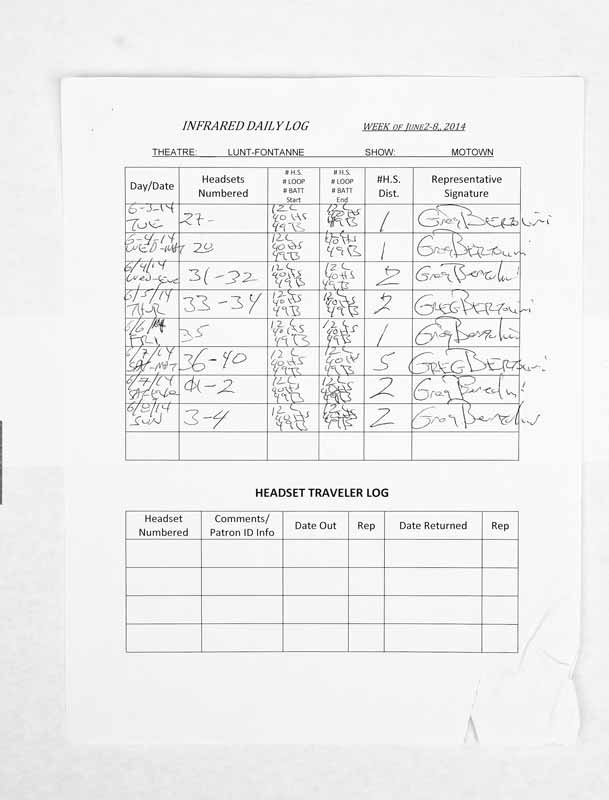 INFRARED DAILY LOG WEEK OF JUNE2-8, 2014
THEATRE: LUNT-FONTANNE SHOW: MOTOWN
Day/Date Headsets Numbered # H.S. # LOOP # BATT Start # H.S. # LOOP # BATT End #H.S. Dist. Representative Signature
6-3-14 TUE 27- 12 L 40 HS 49 B 12 L 40 HS 49 B 1 Greg Bertolini
6-4-14 WED-MAT 12 L 40 HS 49 B 12 L 40 HS 49 B 1 Greg Bertolini
6/4/14 Wed-Eve 31-32 12 L 40 HS 49 B 12 L 40 HS 49 B 2 Greg Bertolini
6/5/14 THUR 33-34 12 L 40 HS 49 B 12 L 40 HS 49 B 2 GREG BERTOLINI
6/6/14 FRI 35 12 L 40 HS 49 B 12 L 40 HS 49 B 1 Greg Bertolini
6/7/14 SAT-MAT 36-40 12 L 40 HS 49 B 12 L 40 HS 49 B 5 GREG BERTOLINI
6/7/14 SAT-EVE 41-2 12 L 40 HS 49 B 12 L 40 HS 49 B 2 Greg Bertolini
6/8/14 SUN 3-4 12 L 40 HS 49 B 12 L 40 HS 49 B 2 Greg Bertolini
HEADSET TRAVELER LOG
Headset Numbered Comments/ Patron ID Info Date Out Rep Date Returned Rep